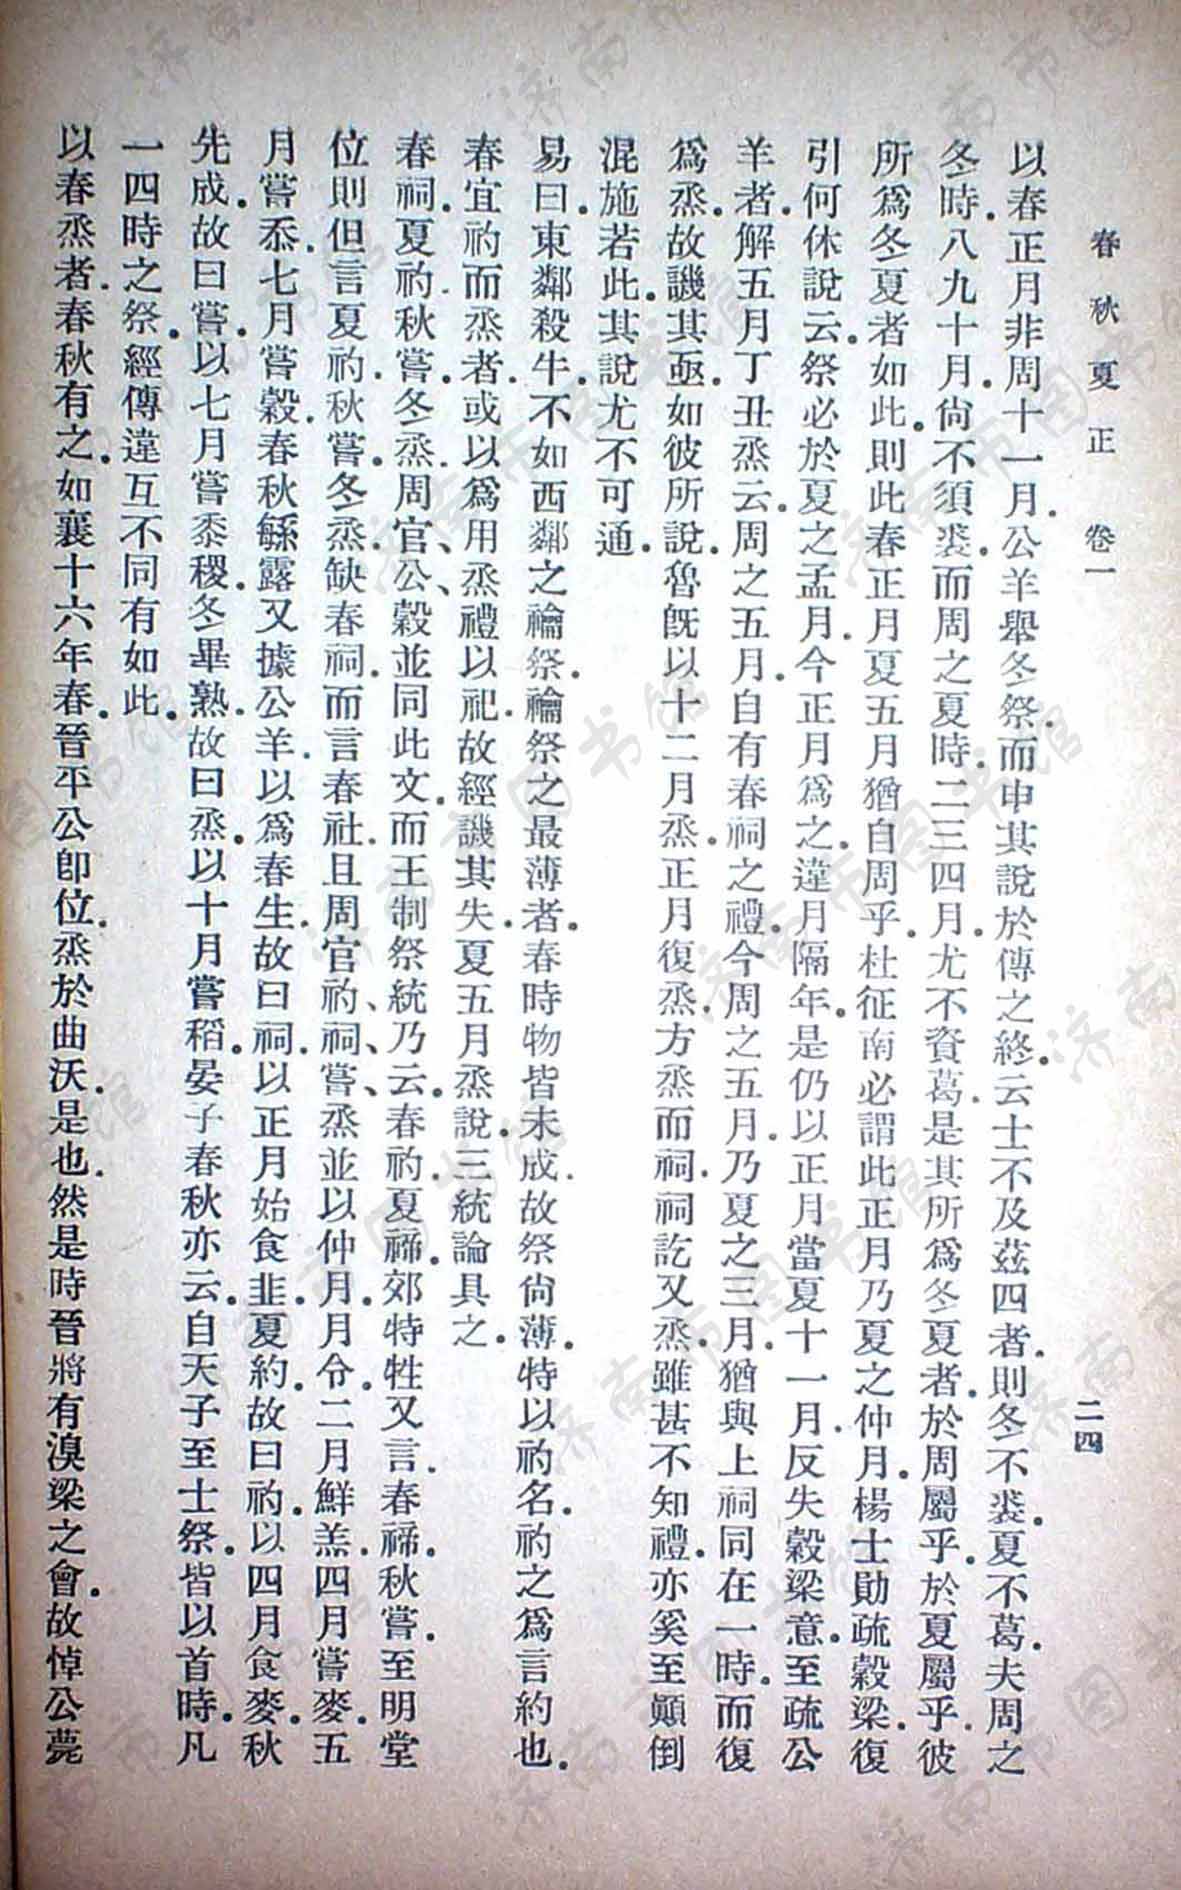 春秋夏正　卷一　二四
以春正月非周十一月.公羊舉冬祭.而申其說於傳之終.云士不及茲四者.則冬不裘.夏不葛.夫周之
冬時.八九十月.尙不須裘.而周之夏時.二三四月.尤不資葛.是其所爲冬夏者.於周屬乎.於夏屬乎.彼
所爲冬夏者如此.則此春正月夏五月猶自周乎.杜征南必謂此正月乃夏之仲月.楊士勛疏穀梁.復
引何休說云.祭必於夏之孟月.今正月爲之.違月隔年.是仍以正月當夏十一月.反失穀梁意.至疏公
羊者.解五月丁丑烝云.周之五月.自有春祠之禮.今周之五月.乃夏之三月.猶與上祠同在一時.而復
爲烝.故譏其亟.如彼所說.魯旣以十二月烝.正月復烝.方烝而祠.祠訖又烝.雖甚不知禮.亦奚至顚倒
混施若此.其說尤不可通.
易曰.東鄰殺牛.不如西鄰之禴祭.禴祭之最薄者.春時物皆未成.故祭尙薄.特以礿名.礿之爲言約也.
春宜礿而烝者.或以爲用烝禮以祀.故經譏其失.夏五月烝說.三統論具之.
春祠.夏礿.秋嘗.冬烝.周官、公、穀並同此文.而王制祭統乃云.春礿.夏禘.郊特牲又言.春禘.秋嘗.至明堂
位則但言夏礿.秋嘗.冬烝.缺春祠.而言春社.且周官礿、祠、嘗、烝並以仲月.月令.二月鮮羔.四月嘗麥.五
月嘗黍.七月嘗穀.春秋繇露又據公羊.以爲春生.故曰祠.以正月始食韭.夏約.故曰礿.以四月食麥.秋
先成.故曰嘗.以七月嘗黍稷.冬畢熟.故曰烝.以十月嘗稻.晏子春秋亦云.自天子至士祭.皆以首時.凡
一四時之祭.經傳違互不同有如此.
以春烝者.春秋有之.如襄十六年春.晉平公卽位.烝於曲沃.是也.然是時晉將有溴梁之會.故悼公薨